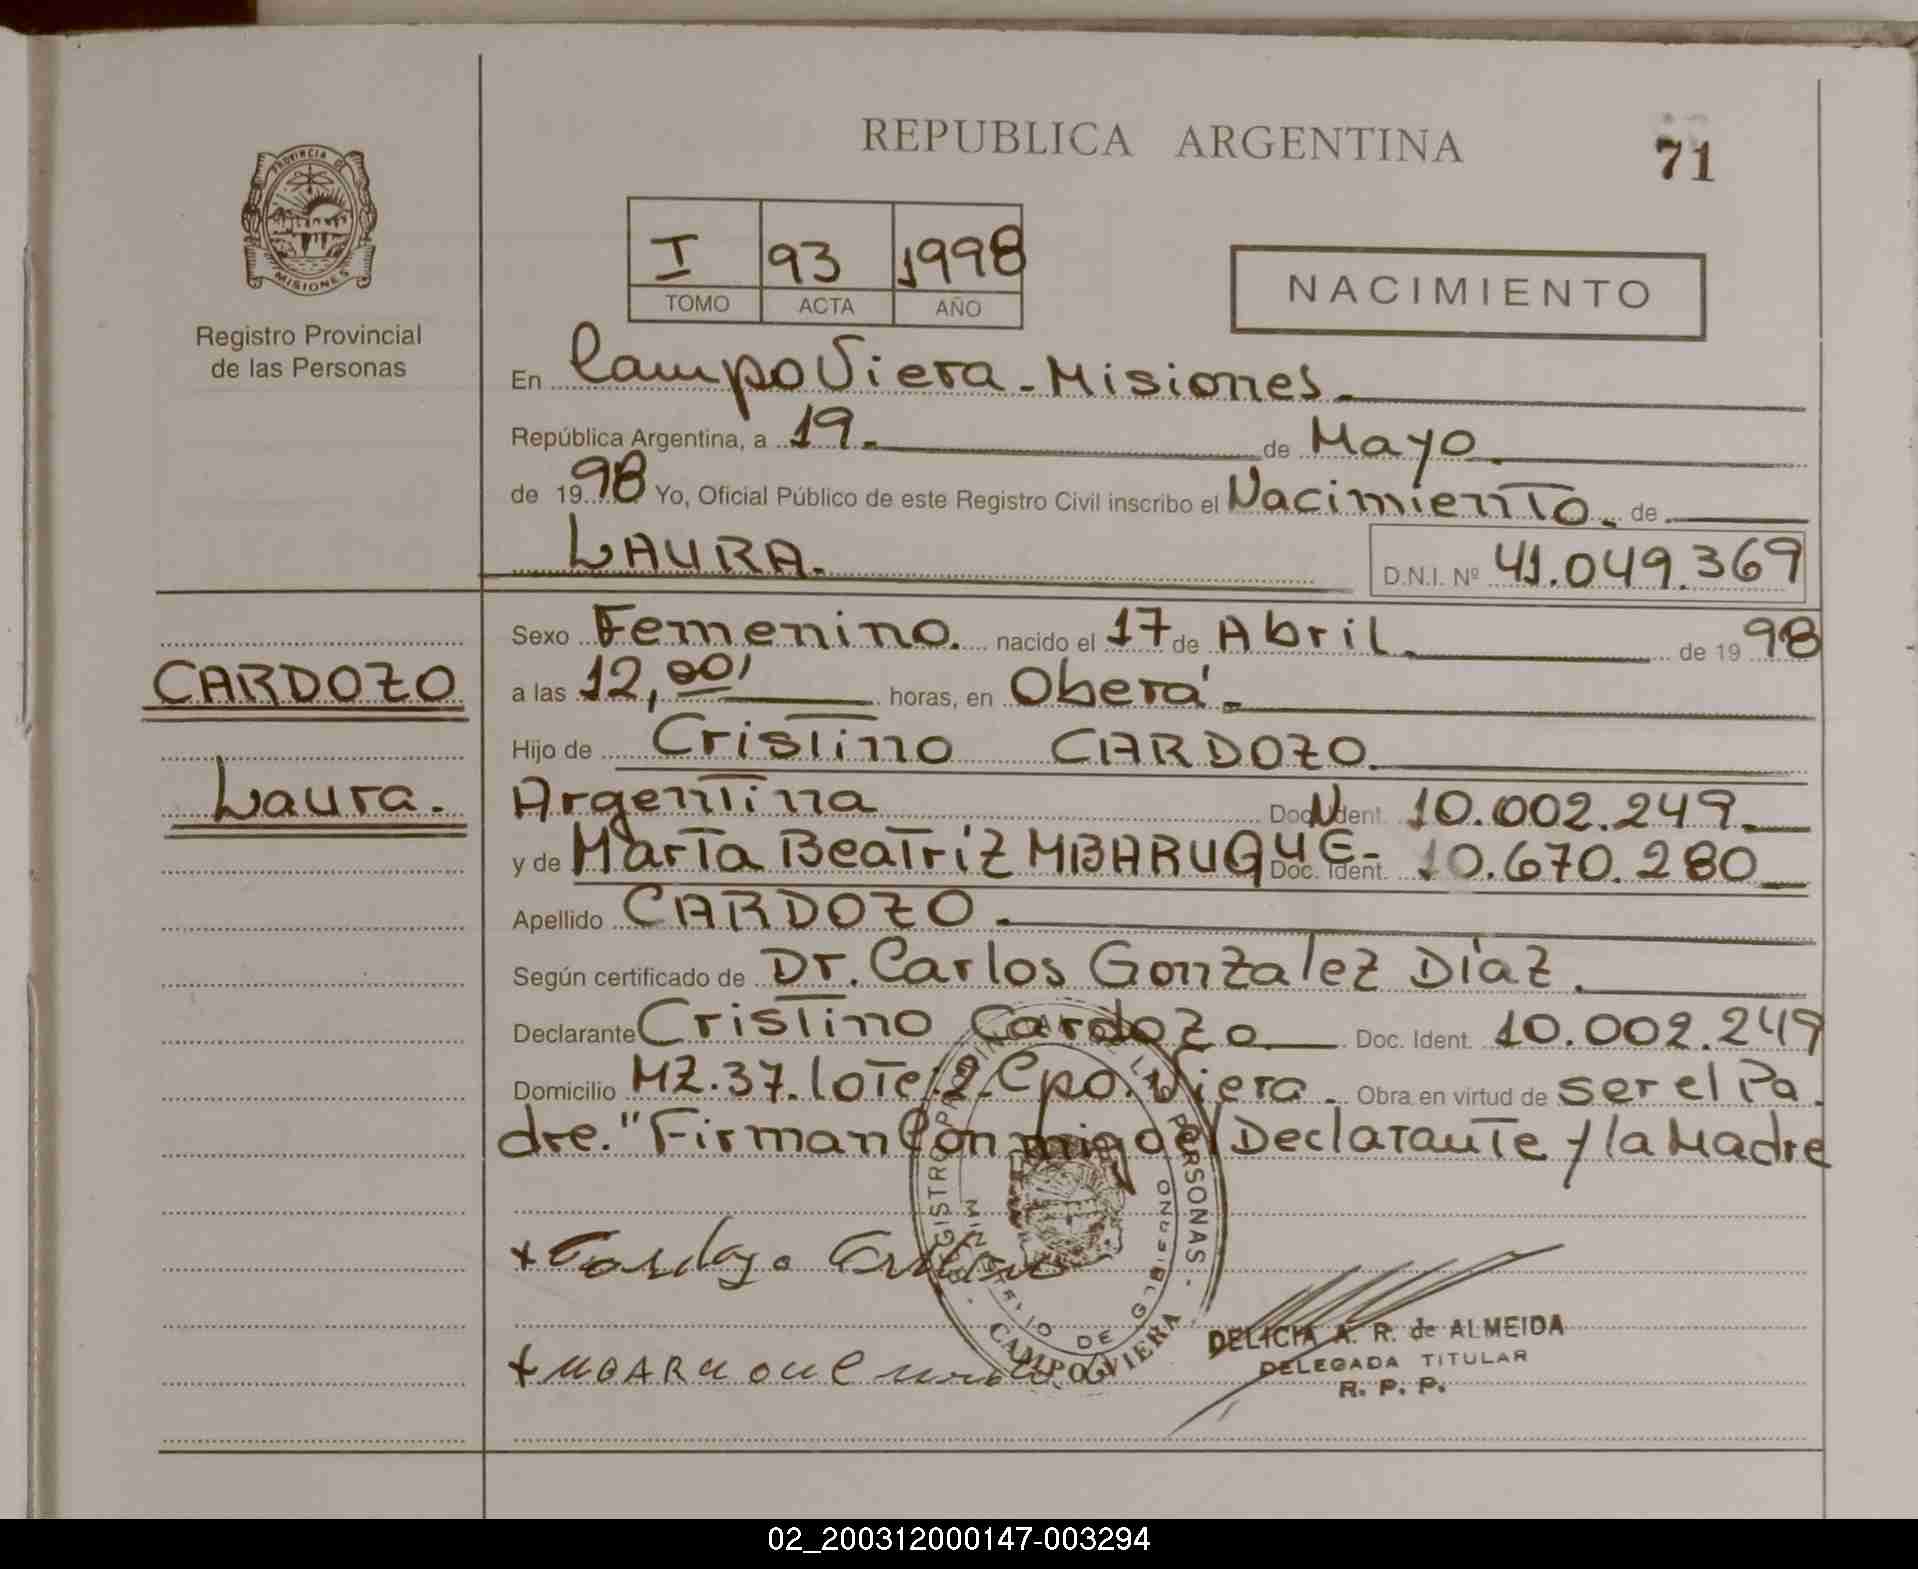 REPUBLICA ARGENTINA
71
PROVINCIA DE
MISIONES
Registro Provincial
de las Personas
I 93 1998
TOMO ACTA AÑO
NACIMIENTO
En Campo Viera - Misiones
República Argentina, a 19 de Mayo
de 1998 Yo, Oficial Público de este Registro Civil inscribo el Nacimiento de
LAURA. D.N.I. Nº 41.049.369
Sexo Femenino. nacido el 17 de Abril de 1998
CARDOZO
a las 12,00' horas, en Oberá
Hijo de Cristino CARDOZO
Laura.
Argentina Doc. Ident. N 10.002.249
y de Marta Beatriz MBARUQUE - Doc. Ident. 10.670.280
Apellido CARDOZO
Según certificado de Dr. Carlos Gonzalez Díaz.
Declarante Cristino Cardozo Doc. Ident. 10.002.249
Domicilio MZ.37.lote:2 Cpo. Viera. Obra en virtud de ser el Pa
dre. "Firman Conmigo el Declarante y la Madre
REGISTRO PROVINCIAL DE LAS PERSONAS
MINISTERIO DE GOBIERNO
CAMPO VIERA
+ Cardozo Cristino
DELICIA A. R. de ALMEIDA
DELEGADA TITULAR
+ MBARUQUE
R. P. P.
02_200312000147-003294